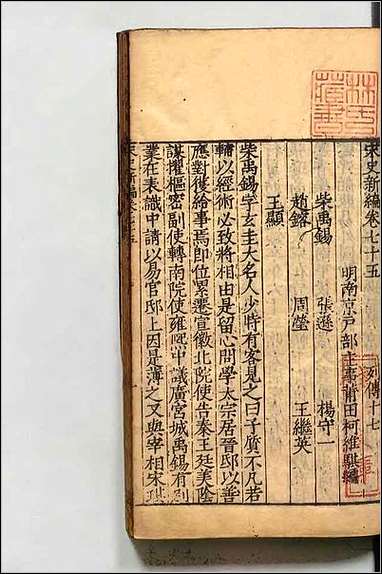 宋史新編卷七十五 列傳十七
明南京戶部主事莆田柯維騏編
柴禹錫 張遜 楊守一
趙鎔 周瑩 王繼英
王顯
柴禹錫字玄圭大名人少時有客見之曰子質不凡若
輔以經術必致將相由是留心問學太宗居晉邸以善
應對獲給事焉即位累遷宣徽北院使告秦王廷美陰
謀擢樞密副使轉南院使雍熙中議廣宮城禹錫有別
業在表識中請以易官邸上因是薄之又與宰相宋琪
林氏藏書